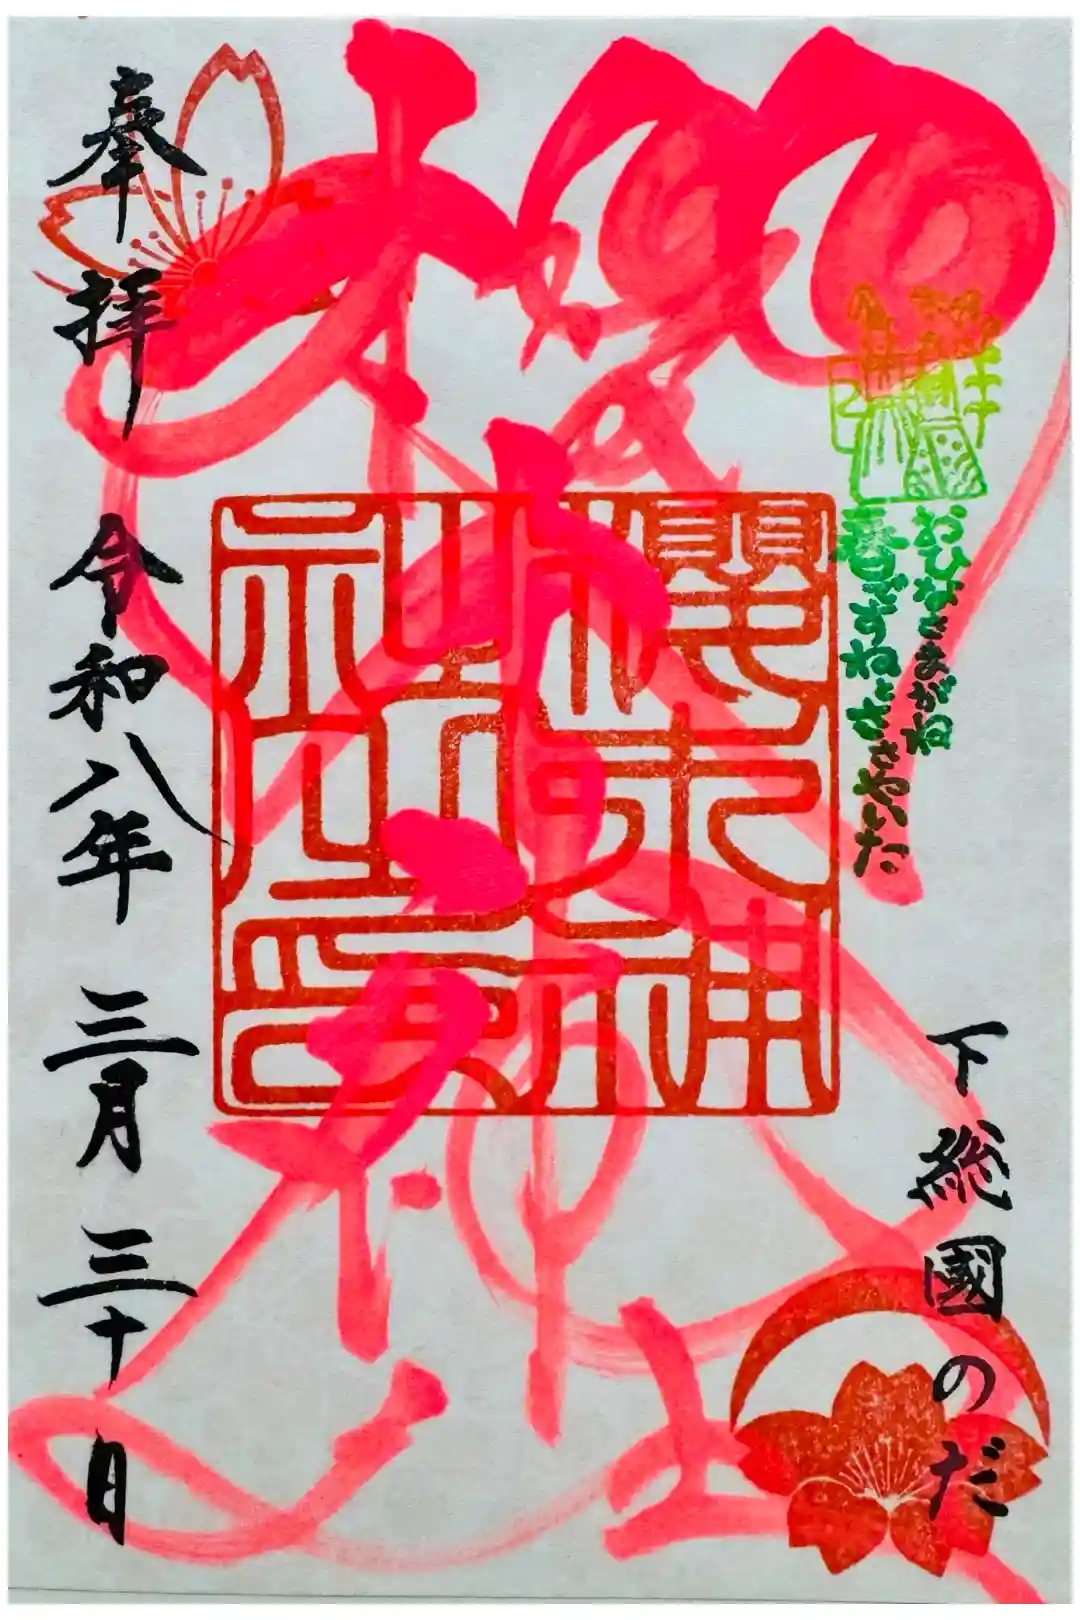 下総國のだ
おひなさまがね
春ですねとささやいた
櫻木神社
櫻木神
社之印
奉拝 令和八年 三月 三十日